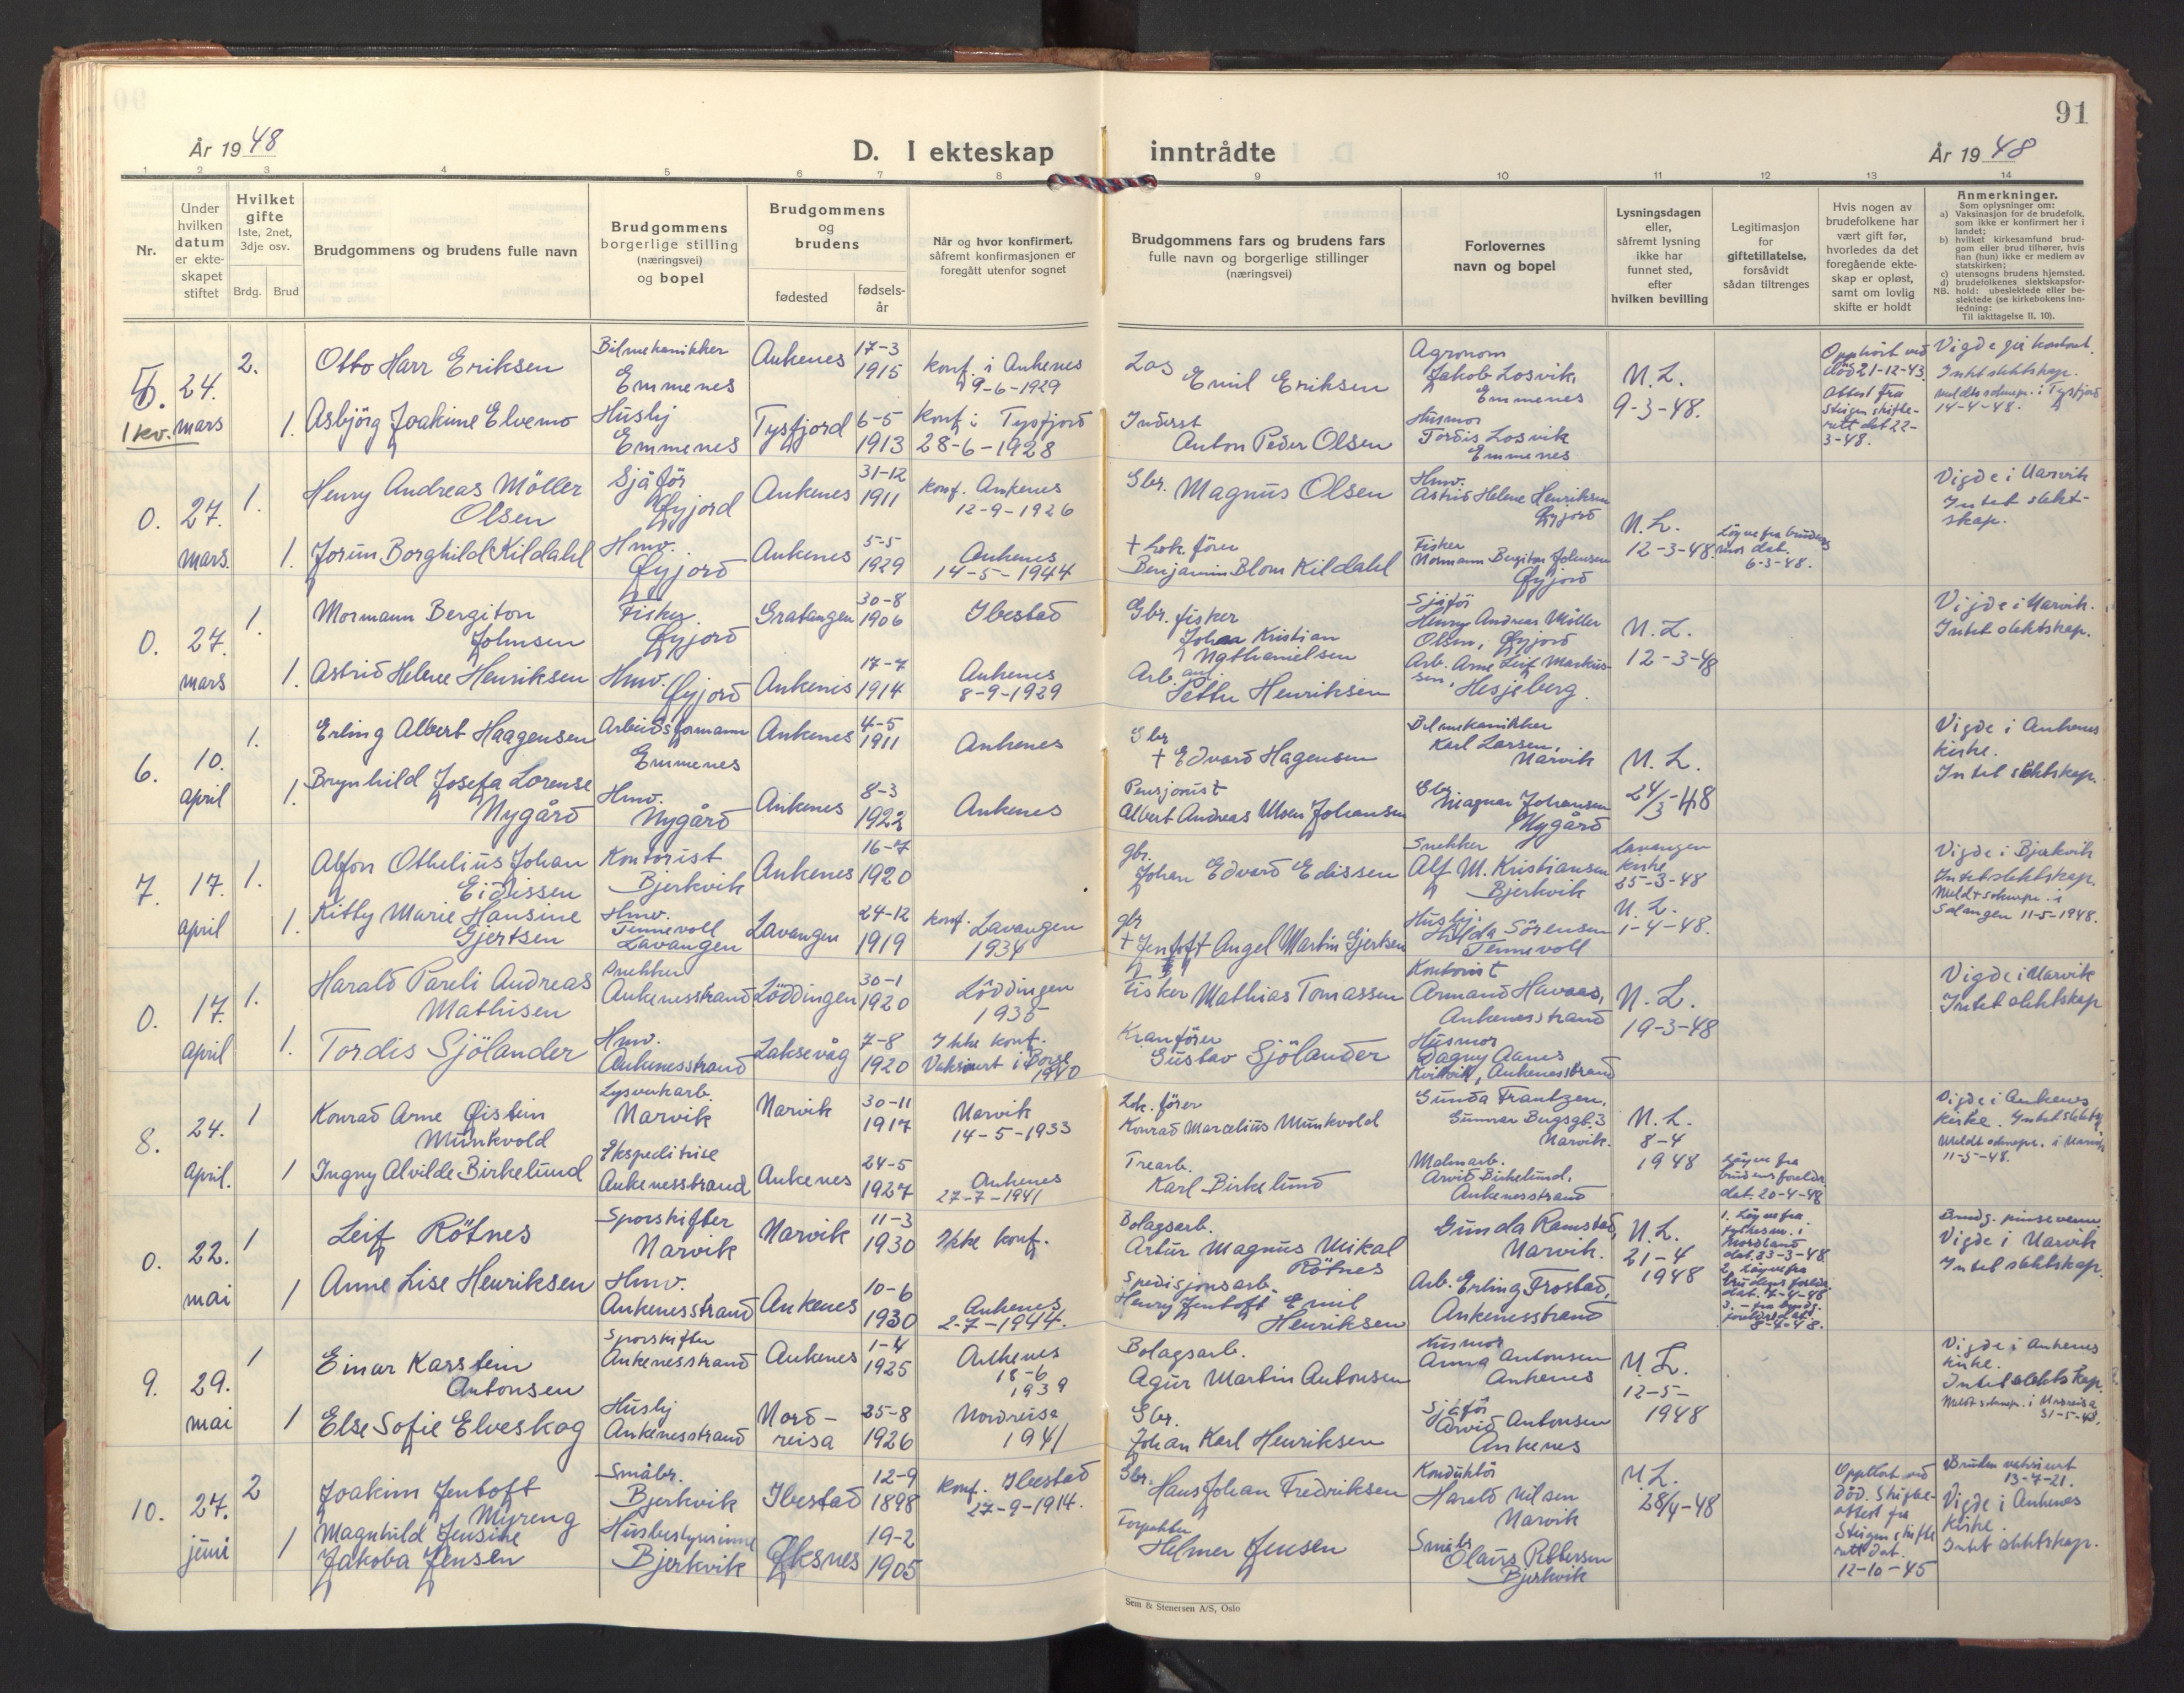 91
År 1948
D. I ekteskap inntrådte
År 1948
1 2 3 4 5 6 7 8 9 10 11 12 13 14
Nr.
Under hvilken datum er ekteskapet stiftet
Hvilket gifte
1ste, 2net, 3dje osv.
Brdg. Brud
Brudgommens og brudens fulle navn
Brudgommens borgerlige stilling
(næringsvei)
og bopel
Brudgommens og brudens
fødested
fødselsår
Når og hvor konfirmert,
såfremt konfirmasjonen er
foregått utenfor sognet
Brudgommens fars og brudens fars
fulle navn og borgerlige stillinger
(næringsvei)
Forlovernes
navn og bopel
Lysningsdagen
eller,
såfremt lysning
ikke har
funnet sted,
efter
hvilken bevilling
Legitimasjon
for
giftetillatelse,
forsåvidt
sådan tiltrenges
Hvis nogen av
brudefolkene har
vært gift før,
hvorledes da det
foregående ekte-
skap er opløst,
samt om lovlig
skifte er holdt
Anmerkninger.
Som oplysninger om:
a) Vaksinasjon for de brudefolk,
som ikke er konfirmert her i
landet;
b) hvilket kirkesamfund brud-
gom eller brud tilhører, hvis
han (hun) ikke er medlem av
statskirken;
c) utensogns brudens hjemsted.
d) brudefolkenes slektskapsfor-
NB. hold: ubeslektede eller be-
slektede (se kirkebokens inn-
ledning:
Til iakttagelse II, 10).
5. 24. mars 2.
1 kv.
Otto Harr Eriksen
Bilmekanikker
Emmenes
Ankenes
17-3
1915
Konf. i Ankenes
9-6-1929
Los
Emil Eriksen
Agronom
Jakob Losvik,
Emmenes
N.L.
9-3-48.
Opphört ved
död 21-12-43.
Attest fra
Steigen skifte-
rett dat 22-
3-48.
Vigde på kontoret.
Intet slektskap.
Meldt soknepr. i Tysfjord
14-4-48.
1. Asbjörg Joakime Elvemo
Husbj
Emmenes
Tysfjord
6-5
1913
Konf. i Tysfjord
28-6-1928
Inderst
Anton Peder Olsen
Husmor
Tordis Losvik
Emmenes
0. 27. mars. 1.
Henry Andreas Möller
Olsen
Sjåför
Øyjord
Ankenes
31-12
1911
Konf. Ankenes
12-9-1926
Gbr. Magnus Olsen
Hmv.
Astrid Helene Henriksen
Øyjord
N.L.
12-3-48.
Löyve fra brudens
mor dat.
6-3-48.
Vigde i Narvik
Intet slekt-
skap.
1. Jorun Borghild Kildahl
Hmv.
Øyjord
Ankenes
5-5
1929
Ankenes
14-5-1944
+ Lok. förer
Benjamin Blom Kildahl
Fisker
Normann Bergiton Johnsen
Øyjord
0. 27. mars 1.
Normann Bergiton
Johnsen
Fisker
Øyjord
Gratangen
30-8
1906
Ibestad
Gbr. fisker
Johan Kristian
Nathanielsen
Sjåför
Henry Andreas Möller
Olsen, Øyjord
N.L.
12-3-48
Vigde i Narvik.
Intet slektskap.
1. Astrid Helene Henriksen
Hmv.
Øyjord
Ankenes
17-7
1914
Ankenes
8-9-1929
Arb.
Henriksen
Arb. Arne Leif Markus-
sen, Hesjeberg.
6. 10. april 1.
Erling Albert Haagensen
Arbeidsformann
Emmenes
Ankenes
4-5
1911
Ankenes
Gbr
+ Edvard Hagensen
Bilmekanikker
Karl Larsen,
Narvik
N.L.
24/3-48
Vigde i Ankenes
kirke.
Intet slektskap.
1. Brynhild Josefa Lorense
Nygård
Hmv.
Nygård
Ankenes
8-3
1922
Ankenes
Pensjonist
Albert Andreas Johansen
Gbr
Magnar Johansen
Nygård
7. 17. april 1.
Alfon Othelius Johan
Eidissen
Kontorist
Bjerkvik
Ankenes
16-7
1920
gbr.
Johan Edvard Edissen
Snekker
Alf M. Kristiansen
Bjerkvik
Lavangen
kirke
25-3-48
N.L.
1-4-48.
Vigde i Bjerkvik
Intet slektskap.
Meldt soknepr. i
Salangen 11-5-1948.
1. Kitty Marie Hansine
Gjertsen
Hmv.
Tennevoll
Lavangen
Lavangen
24-12
1919
konf. Lavangen
1934
gbr
+ Jentoft Angel Martin Gjertsen
Husbj.
Hilda Sörensen
Tennevoll
0. 17. april 1.
Harald Pareli Andreas
Mathisen
Snekker
Ankenesstrand
Löddingen
30-1
1920
Löddingen
1935
Fisker Mathias Tomassen
Kontorist
Armand Havaas,
Ankenesstrand
N.L.
19-3-48
Vigde i Narvik
Intet slektskap
1. Tordis Sjölander
Hmv.
Ankenesstrand
Laksevåg
7-8
1920
Ikke konf.
Vaksinert i Borge
1940
Kranförer
Gustav Sjölander
Husmor
Dagny Aanes
Kvitvik, Ankenesstrand
8. 24. april. 1
Konrad Arne Øistein
Munkvold
Lysverkarb.
Narvik
Narvik
30-11
1917
Narvik
14-5-1933
Lok. förer
Konrad Marcelius Munkvold
Gunda Frantzen,
Gunnar Bergsgt. 3
Narvik.
N.L.
8-4
1948
Vigde i Ankenes
kirke. Intet slektsk.
Meldt soknepr. i Narvik
11-5-48.
1 Ingny Alvilde Birkelund
Ekspeditrise
Ankenesstrand
Ankenes
24-5
1927
Ankenes
27-7-1941
Trearb.
Karl Birkelund
Malmarb.
Arvid Birkelund,
Ankenesstrand
Löyve fra
brudens foreldr.
dat. 20-4-48
0. 22. mai 1
Leif Rötnes
Sporskifter
Narvik
Narvik
11-3
1930
Ikke konf.
Bolagsarb.
Artur Magnus Mikal
Rötnes
Gunda Ramstad,
Narvik.
N.L.
21-4
1948
1. Löyve fra
fylkesm. i
Nordland
dat. 23-3-48.
2. Löyve fra
brudens foreldr.
dat. 7-4-48
3. - fra brudg.
foreldre dat.
8-4-48.
Brudg. pinsevenn
Vigde i Narvik
Intet slektskap.
1 Anne Lise Henriksen
Hmv.
Ankenesstrand
Ankenes
10-6
1930
Ankenes
2-7-1944.
Spedisjonsarb.
Henry Jentoft Emil
Henriksen
Arb. Erling Frostad,
Ankenesstrand
9. 29. mai 1
Einar Karstein
Antonsen
Sporskifter
Ankenesstrand
Ankenes
1-4
1925
Ankenes
18-6
1939
Bolagsarb.
Agur Martin Antonsen
Husmor
Anna Antonsen
Ankenes
N.L.
12-5-
1948
Vigde i Ankenes
kirke.
Intet slektskap.
Meldt soknepr. i Nordreisa
31-5-48.
1 Else Sofie Elveskog
Husbj
Ankenesstrand
Nord-
reisa
25-8
1926
Nordreisa
1941
Gbr.
Johan Karl Henriksen
Sjåför
Arvid Antonsen
Ankenes
10. 27. juni 2
Joakim Jentoft
Myreng
Småbr.
Bjerkvik
Ibestad
12-9
1898
Konf. Ibestad
27-9-1914.
Gbr.
Hans Johan Fredriksen
Konduktör
Harald Nilsen
Narvik
N.L.
28/4-48
Opphört ved
död. Skifte-
attest fra
Steigen skifte
rett dat.
12-10-45
Bruden vaksinert
13-7-21.
Vigde i Ankenes
kirke.
Intet slektskap.
1 Magnhild Jensine
Jakoba Jensen
Husbestyrerinne
Bjerkvik
Øksnes
19-2
1905
Helmer Jensen
Småbr
Olaus Pettersen
Bjerkvik
Sem & Stenersen A/S, Oslo